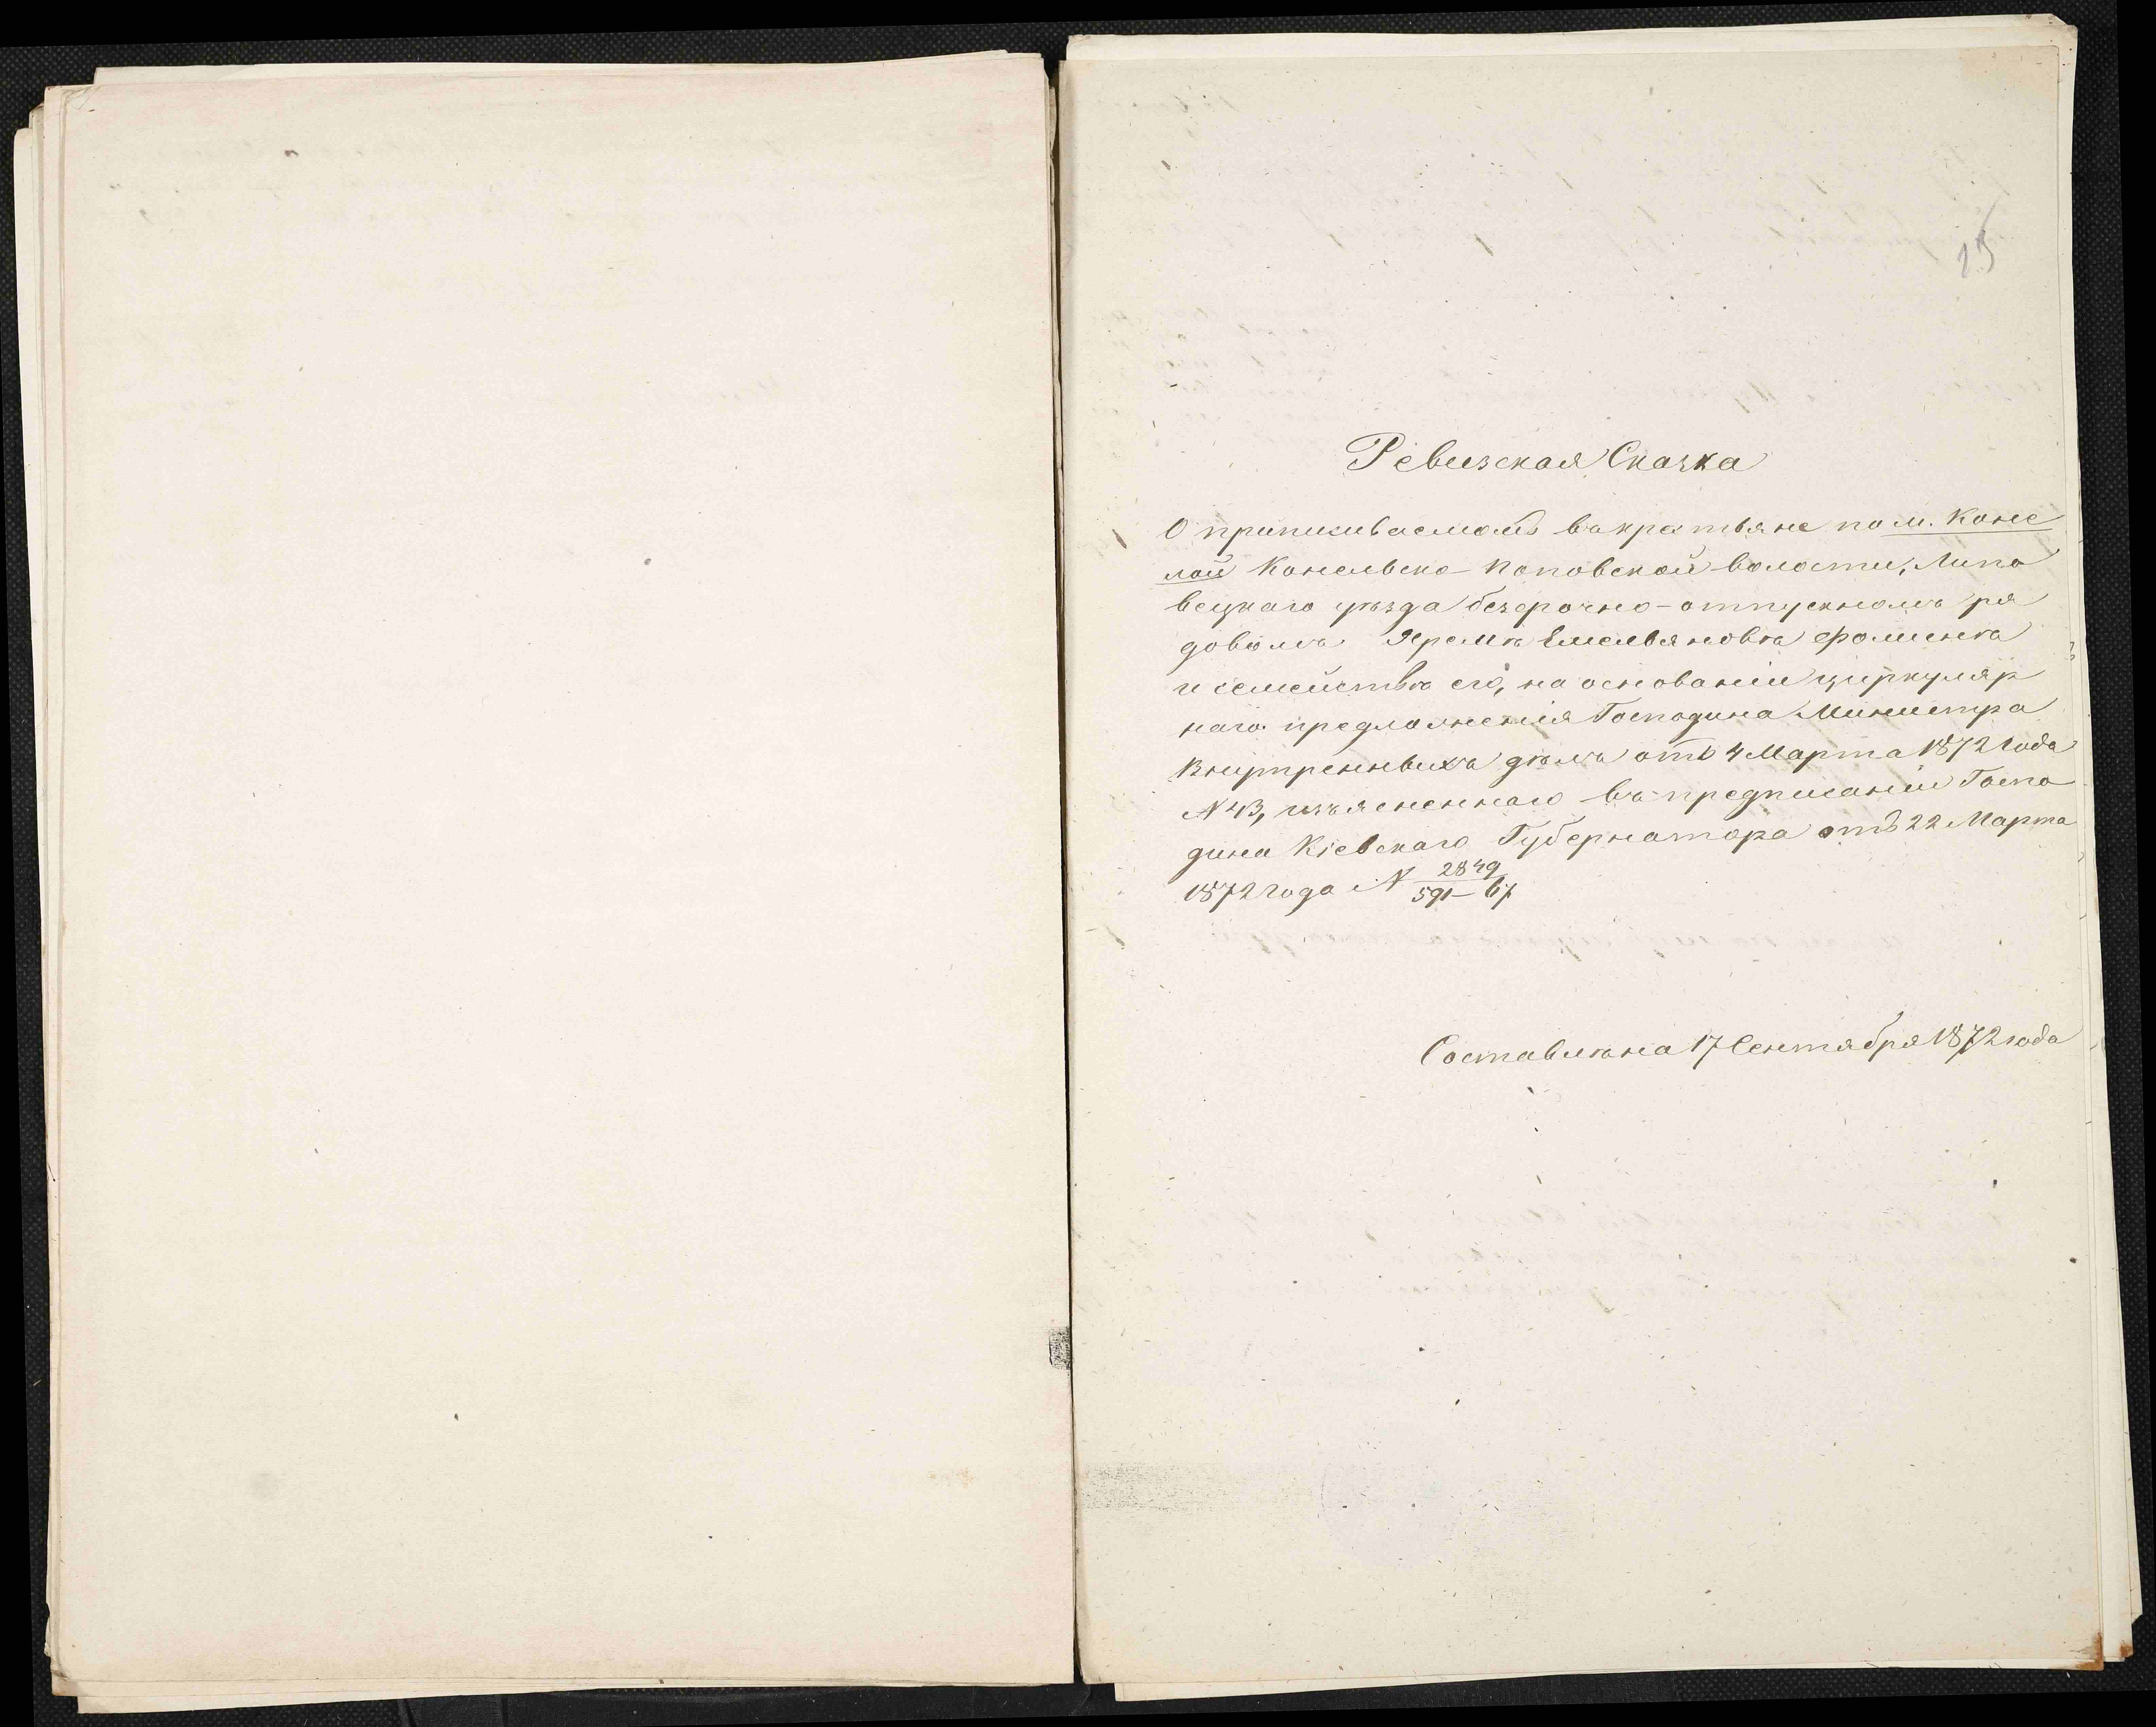 25
Ревизская Сказка
О приписываемомъ въ крестьяне по м. Коне
лой Конельско-Поповской волости, Липо
вецкаго уѣзда безсрочно-отпускномъ ря
довомъ Яремѣ Емельяновѣ Фоменкѣ
и семействѣ его, на основаніи циркуляр
наго предложенія Господина Министра
Внутреннихъ дѣлъ отъ 4 Марта 1872 года
N 43, изъясненнаго въ предписаніи Госпо
дина Кіевскаго Губернатора отъ 22 Марта
1872 года N 2849
Составлена 17 Сентября 1872 года